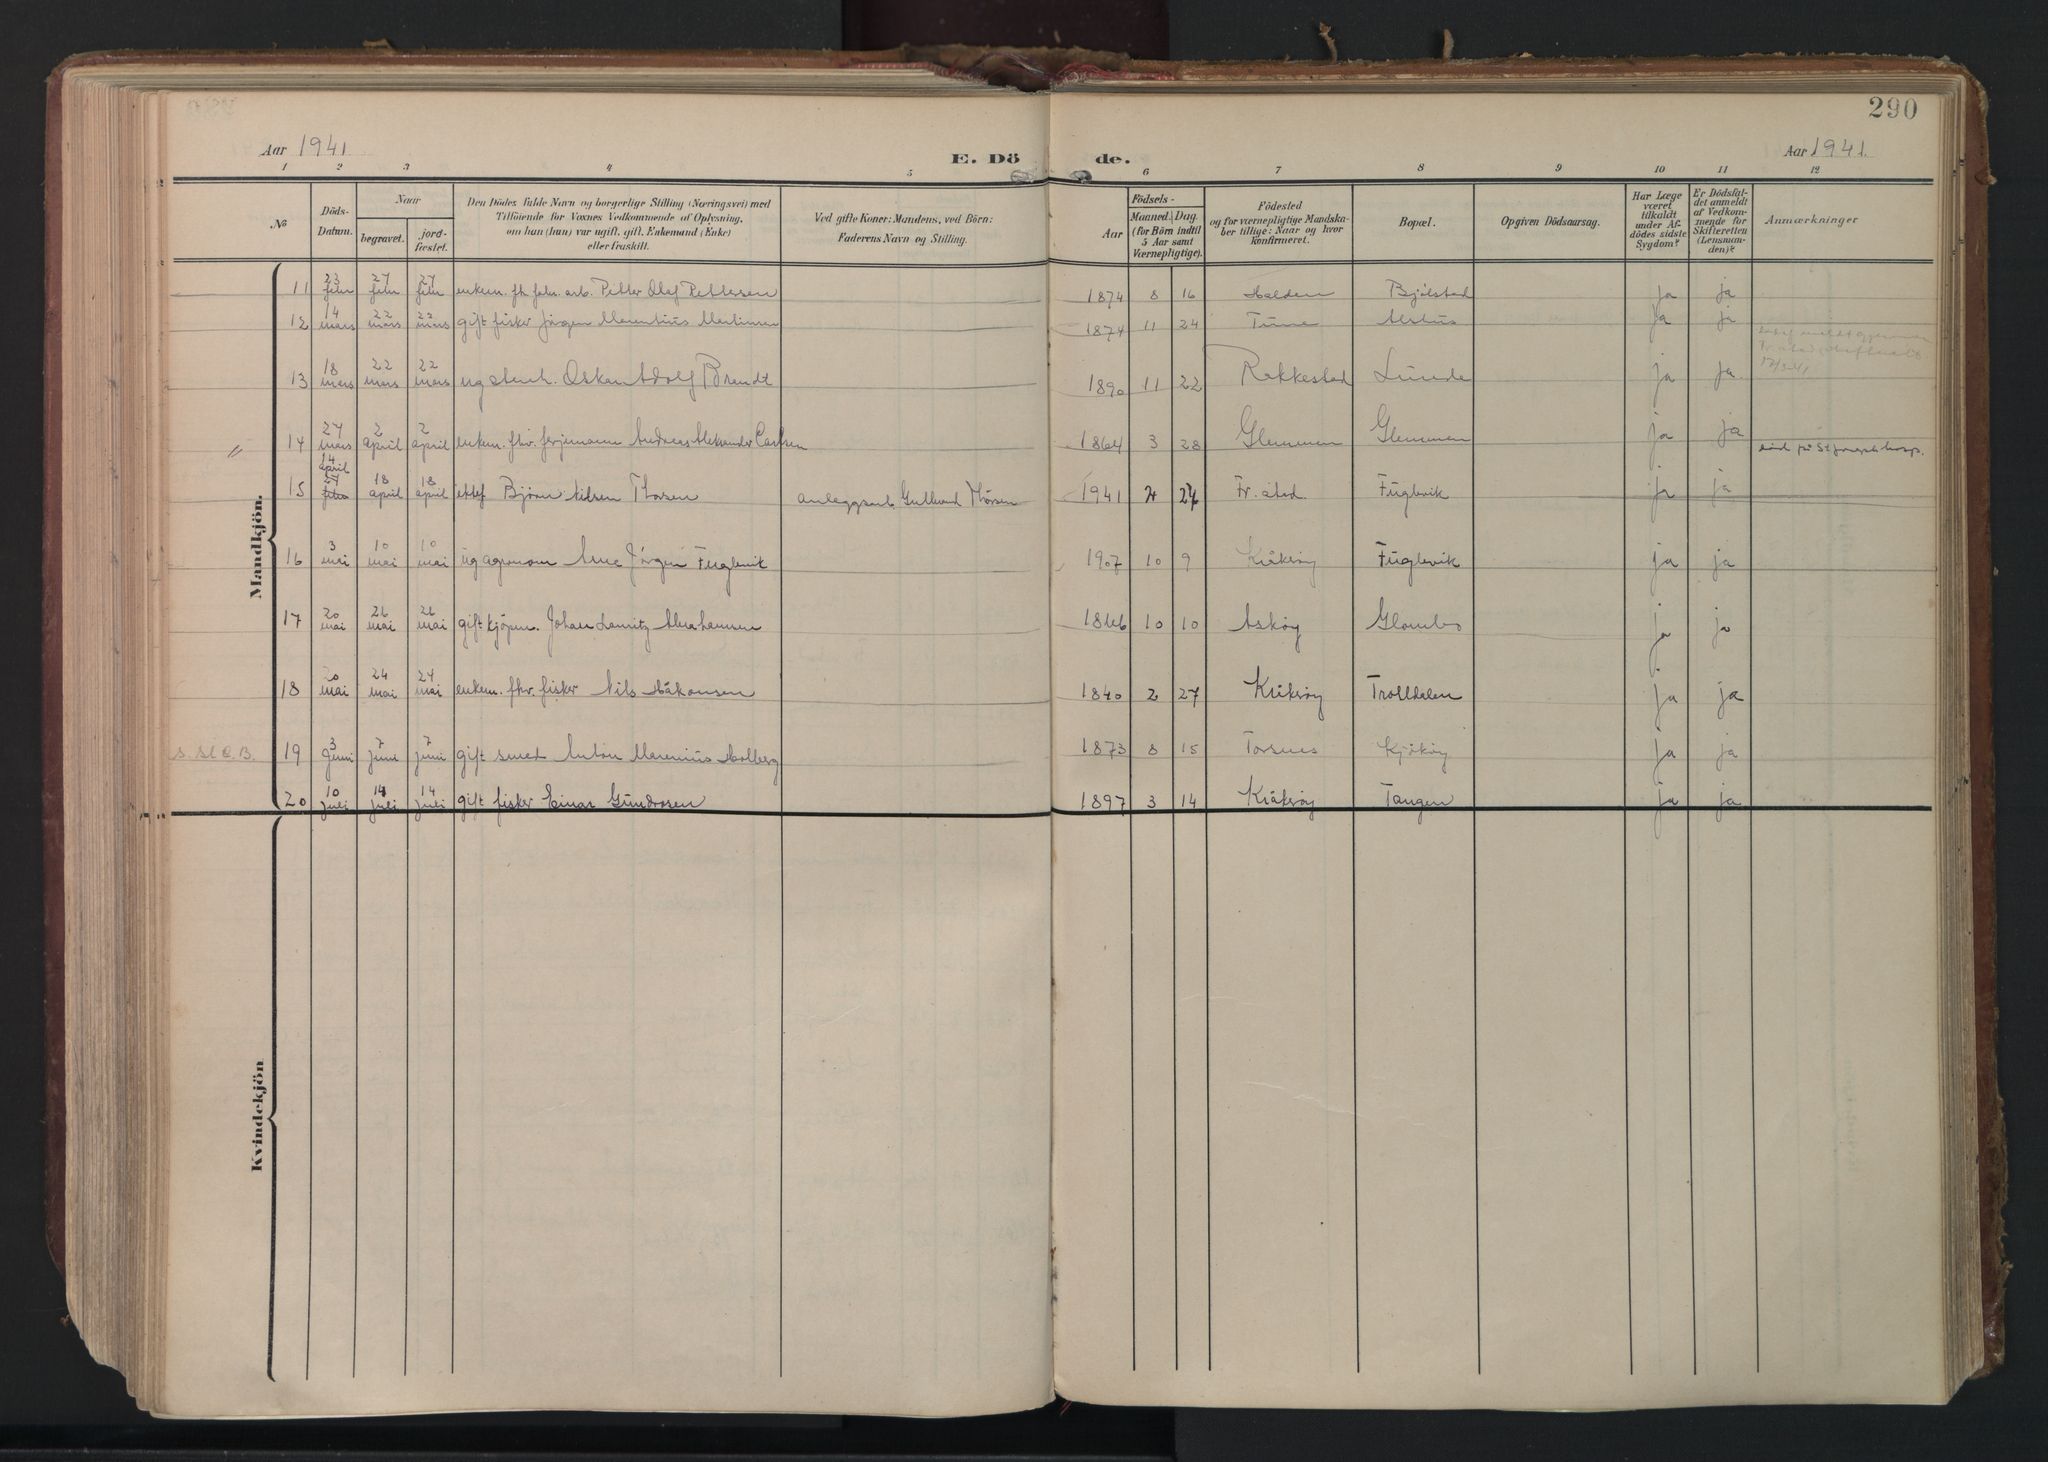 290
Aar 1941
E. Dö de.
Aar 1941.
1 2 3 4 5 6 7 8 9 10 11 12
No
Döds-Datum.
Naar
begravet.
jord-fæstet.
Den Dödes fulde Navn og borgerlige Stilling (Næringsvei) med Tilföiende for Voxnes Vedkommende af Oplysning, om han (hun) var ugift, gift, Enkemand (Enke) eller fraskilt.
Ved gifte Koner: Mandens, ved Börn: Faderens Navn og Stilling.
Födsels-
Aar
Maaned. Dag.
(for Börn indtil 5 Aar samt Værnepligtige).
Födested og for værnepligtige Mandskaber tillige: Naar og hvor Konfirmeret.
Bopæl.
Opgiven Dödsaarsag.
Har Læge været tilkaldt under Afdödes sidste Sygdom?
Er Dödsfaldet anmeldt af Vedkommende for Skifteretten (Lensmanden)?
Anmærkninger
Mandkjön.
11 23 febr 27 febr 27 febr enkem. fh. fabr. arb. Petter Olaf Pettersen 1874 8 16 Halden Bjölstad ja ja
12 14 mars 22 mars 22 mars gift fisker Jörgen Marentius Martinsen 1874 11 24 Tune Ålehus ja ja
13 18 mars 22 mars 22 mars ug stenh. Oskar Adolf Brandt 1890 11 22 Rakkestad Lunde ja ja 17/3-41
" 14 27 mars 2 april 2 april enkem. fhv. ferjemann Andreas Aleksander Carlsen 1864 3 28 Glemmen Glemmen ja ja död på St Josephs hosp.
15 14 april 27 febr 18 april 18 april ektef Björn Nilsen Thorsen anleggsarb. Gulbrand Thorsen 1941 2 27 Fr. stad Fuglevik ja ja
16 3 mai 10 mai 10 mai ug agronom Arne Jörgen Fuglevik 1907 10 9 Kråkröy Fuglevik ja ja
17 20 mai 26 mai 26 mai gift kjöpm. Johan Lauritz Abrahamsen 1866 10 10 Asköy Glombo ja ja
18 20 mai 24 mai 24 mai enkem. fhv. fisker Nils Håkonsen 1840 2 27 Kråkröy Trolldalen ja ja
s. St. C. B. 19 3 juni 7 juni 7 juni gift smed Anton Marenius Holberg 1873 8 15 Torsnes Kjököy ja ja
20 10 juli 14 juli 14 juli gift fisker Einar Gundersen 1897 3 14 Kråkröy Tangen ja ja
Kvindekjön